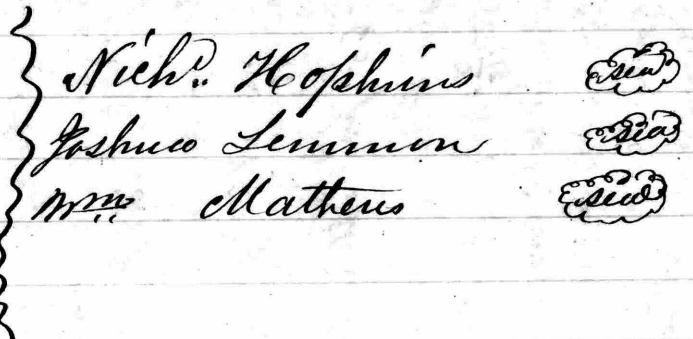 Nichs. Hopkins seal
Joshua Lemmon seal
Wm. Mathews seal